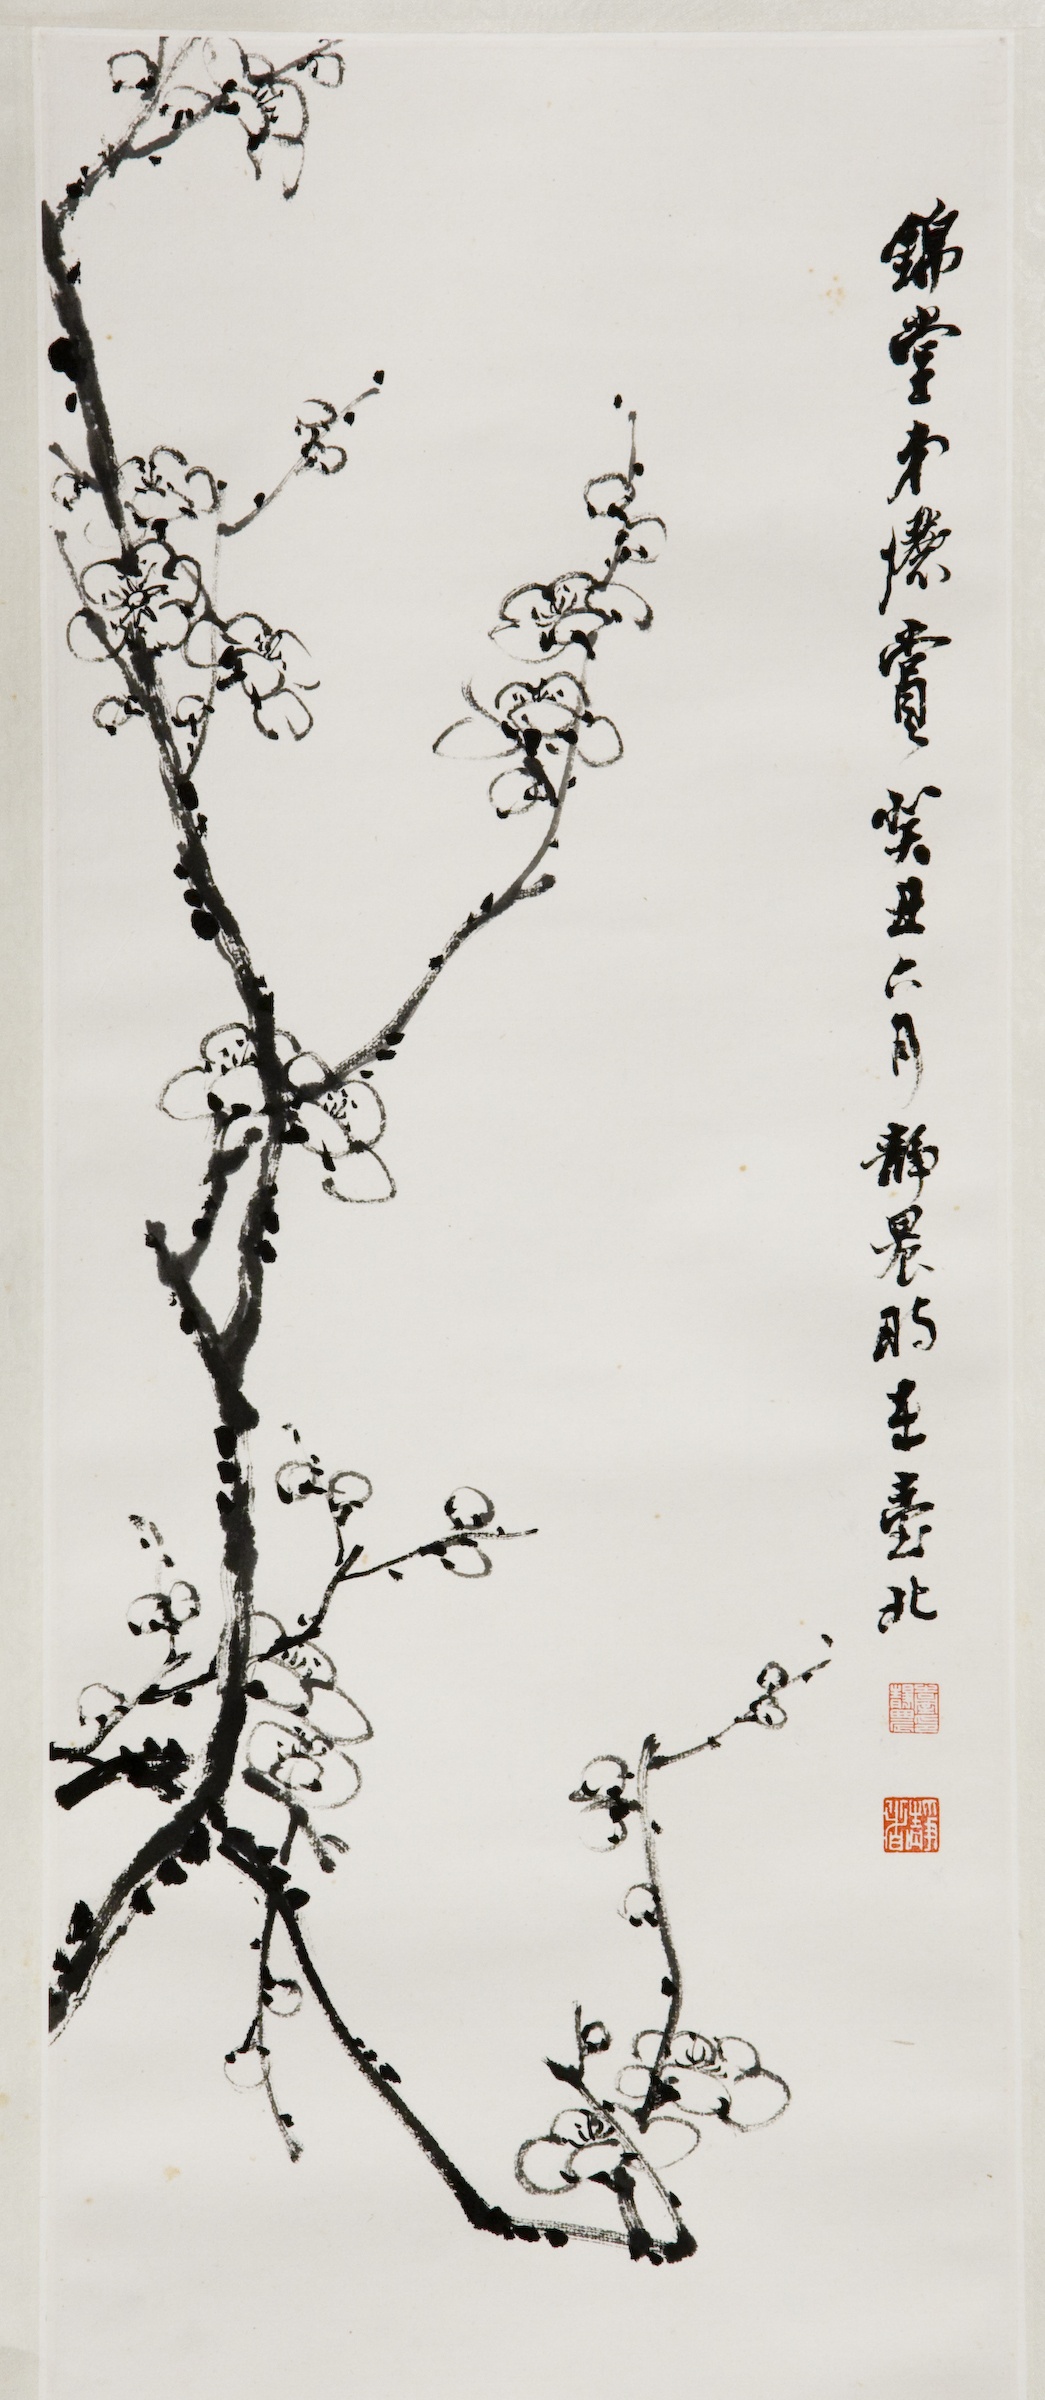 錦堂弟儷賞 癸丑六月 靜農時在臺北
臺靜農
靜者